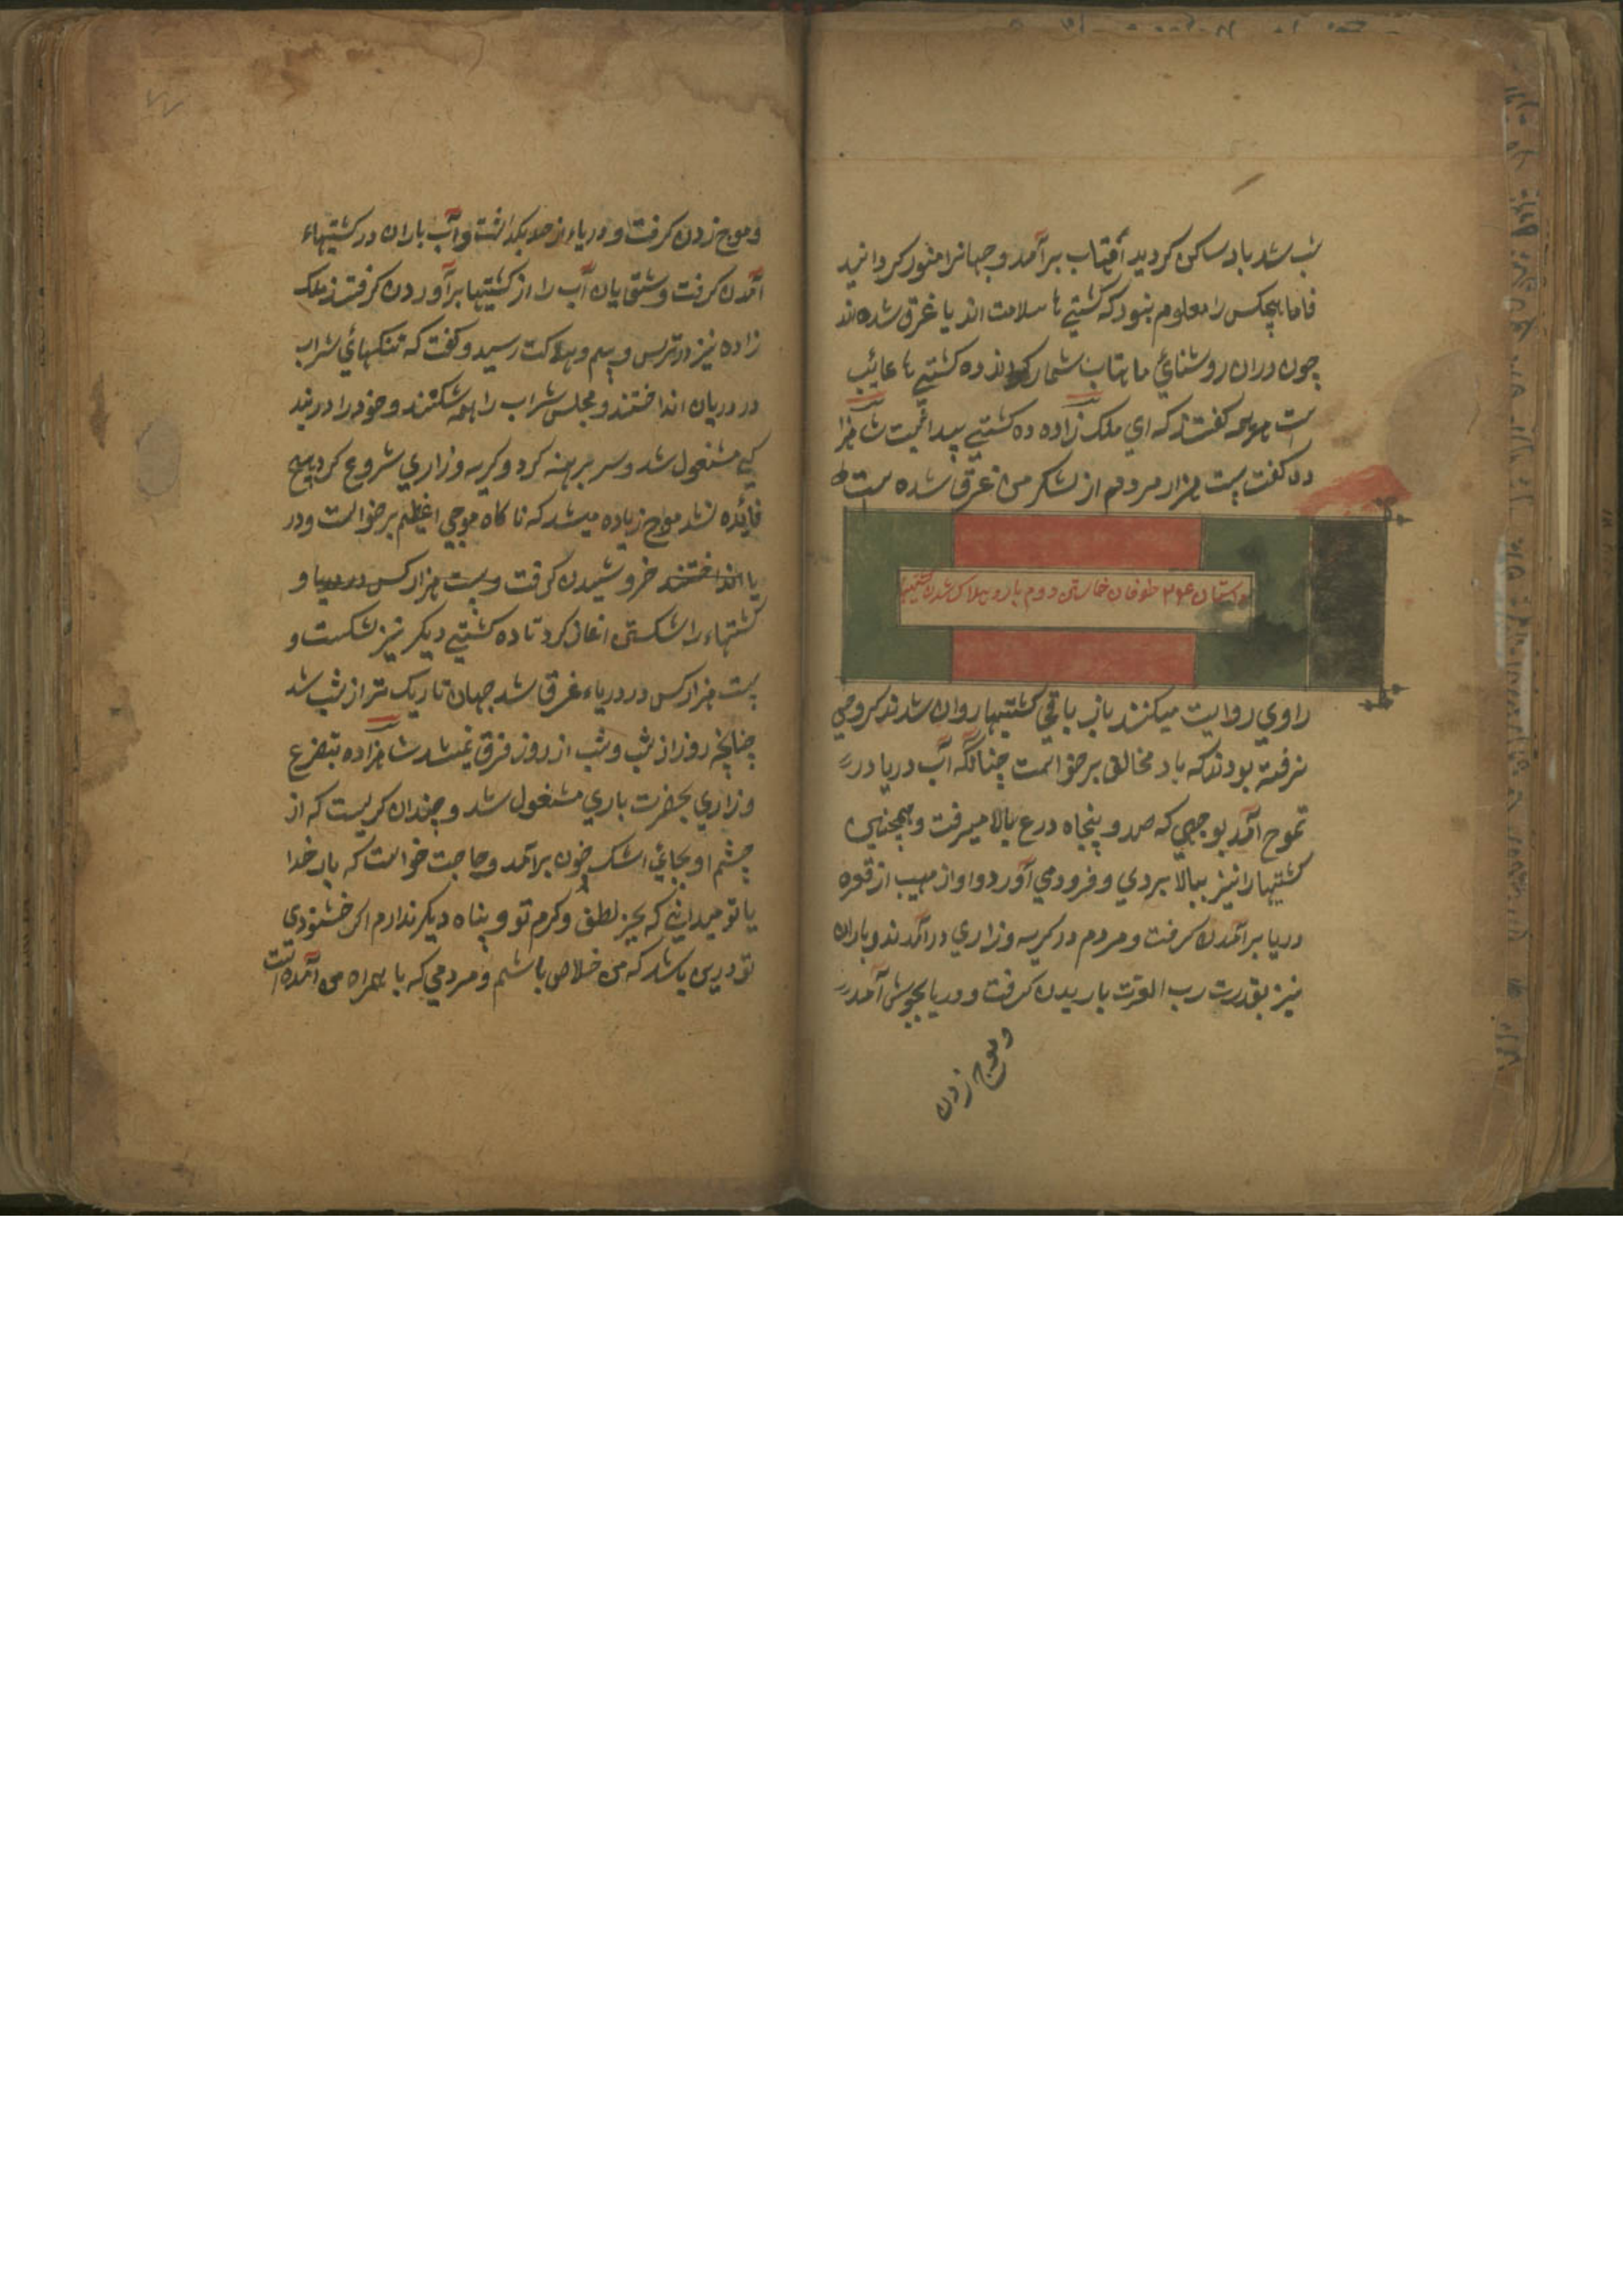 شب شد باد ساکن کردید آفتاب برآمد و جهانرا منور کردانید
فاما هیچکس را معلوم نبود که کشتیے ها سلامت اند یا غرق شده اند
چون دران روشنائ ماهتاب شمار کردند ده کشتیے ها غائب
است همه کفتند که ای ملک زاده ده کشتیے پیدا نیست شاهزا
ده کفت بیست هزار مردم از لشکر من غرق شده است
داستان ۲۶ طوفان خاستن دوم بار و هلاک شدن کشتیها
راوی روایت میکنند باز باقی کشتیها روان شدند کروهی
نرفته بودند که باد مخالف برخواست چنانکه آب دریا در
تموج آمد بوجهی که صد و پنجاه درع بالا میرفت و همچنین
کشتیها را نیز ببالا بردی و فرود می آورد و اواز مهیب از قعره
دریا برآمدن کرفت و مردم در کریه و زاری درآمدند و باران
نیز بقدرت رب العزت باریدن کرفت و دریا بجوش آمد
و موج زدن
و موج زدن کرفت و دریاء از حد بکذاشت و آب باران در کشتیهاء
آمدن کرفت و سقایان آب را از کشتیها برآوردن کرفتند ملک
زاده نیز در ترس و بیم و هلاکت رسید و کفت که تنکهائ شراب
در دریان انداختند و مجلس شراب را همه شکستند و خود را در بند
کی مشغول شد و سر برهنه کرد و کریه و زاری شروع کرد هیچ
فائده نشد مواج زیاده میشد که ناکاه موجی اعظیم برخواست و در
یا انداختند خروشیدن کرفت و بیست هزار کس در دریا و
کشتهاء را شکستن اغاز کرد تا ده کشتیے دیکر نیز شکست و
بیست هزار کس در دریاء غرق شد جهان تاریک تر از شب شد
چنانچه روز از شب و شب از روز فرق نمیشد شاهزاده بتضرع
و زاری بحضرت باری مشغول شد و چندان کریست که از
چشم او بجائ اشک خون برآمد و حاجت خواست که بار خدا
یا تو میدانیے که بجز لطف و کرم تو و پناه دیکر ندارم اکر خشنودی
تو درین باشد که من خلاص باشم و مردمی که با همراه من آمده است